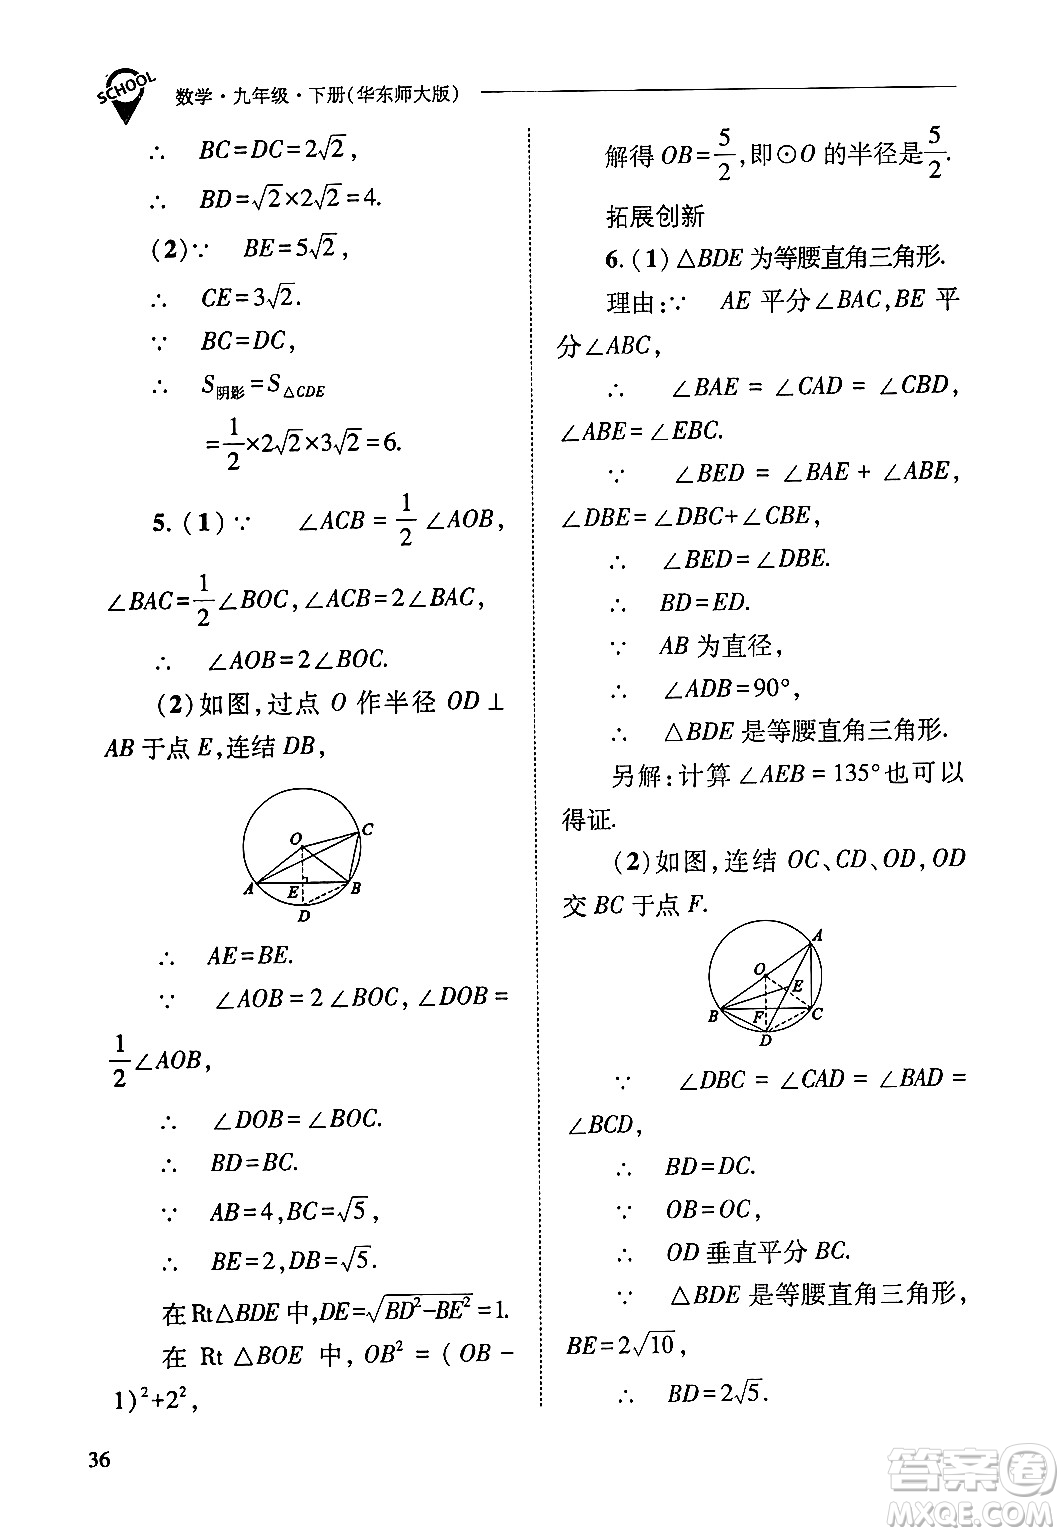 SCHOOL
数学·九年级·下册(华东师大版)
∴ BC=DC=2√2,
∴ BD=√2×2√2=4.
(2)∵ BE=5√2,
∴ CE=3√2.
∵ BC=DC,
∴ S阴影=S△CDE
=1/2×2√2×3√2=6.
5. (1)∵ ∠ACB=1/2∠AOB,
∠BAC=1/2∠BOC,∠ACB=2∠BAC,
∴ ∠AOB=2∠BOC.
(2)如图,过点 O 作半径 OD⊥
AB于点E,连结DB,
O
C
A
E
B
D
∴ AE=BE.
∵ ∠AOB=2∠BOC,∠DOB=
1/2∠AOB,
∴ ∠DOB=∠BOC.
∴ BD=BC.
∵ AB=4,BC=√5,
∴ BE=2,DB=√5.
在Rt△BDE中,DE=√(BD²-BE²)=1.
在 Rt △BOE 中, OB²=(OB-
1)²+2²,
36
解得OB=5/2,即⊙O的半径是5/2.
拓展创新
6.(1)△BDE为等腰直角三角形.
理由:∵ AE平分∠BAC,BE平
分∠ABC,
∴ ∠BAE=∠CAD=∠CBD,
∠ABE=∠EBC.
∵ ∠BED=∠BAE+∠ABE,
∠DBE=∠DBC+∠CBE,
∴ ∠BED=∠DBE.
∴ BD=ED.
∵ AB为直径,
∴ ∠ADB=90°,
∴ △BDE是等腰直角三角形.
另解:计算∠AEB=135°也可以
得证.
(2)如图,连结OC、CD、OD,OD
交BC于点F.
A
O
E
B
F
C
D
∵ ∠DBC=∠CAD=∠BAD=
∠BCD,
∴ BD=DC.
∵ OB=OC,
∴ OD垂直平分BC.
∵ △BDE是等腰直角三角形,
BE=2√10,
∴ BD=2√5.
答案圈
MXQE.COM